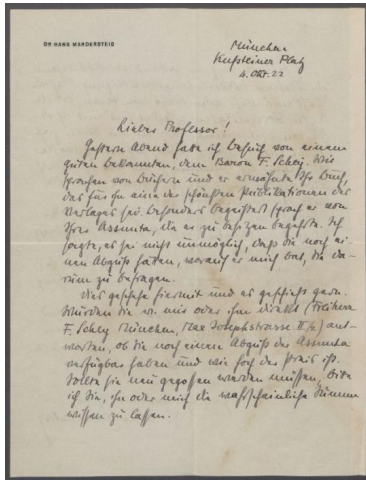 DR HANS MARDERSTEIG
München
Kufsteiner Platz
4. Okt. 22
Lieber Professor!
Gestern Abend hatte ich Besuch von einem
guten Bekannten, dem Baron F. Schey. Wir
sprachen von Büchern und er erwähnte Ihr Buch,
das für ihn eine der schönsten Publikationen des
Verlages sei. Besonders begeistert sprach er von
Ihrer Assunta, die er zu besitzen begehrte. Ich
sagte, es sei nicht unmöglich, dass Sie noch ei-
nen Abguss hätten, worauf er mich bat, Sie da-
rum zu befragen.
Dies geschehe hiermit und es geschieht gern.
Würden Sie mir oder ihm direkt (Freiherr
F. Schey München, Josephstrasse II) ant-
worten, ob Sie noch einen Abguss der Assunta
verfügbar haben und wie hoch der Preis ist.
Sollte sie neu gegossen werden müssen, bitte
ich Sie, ihn oder mich die wahrscheinliche Summe
wissen zu lassen.